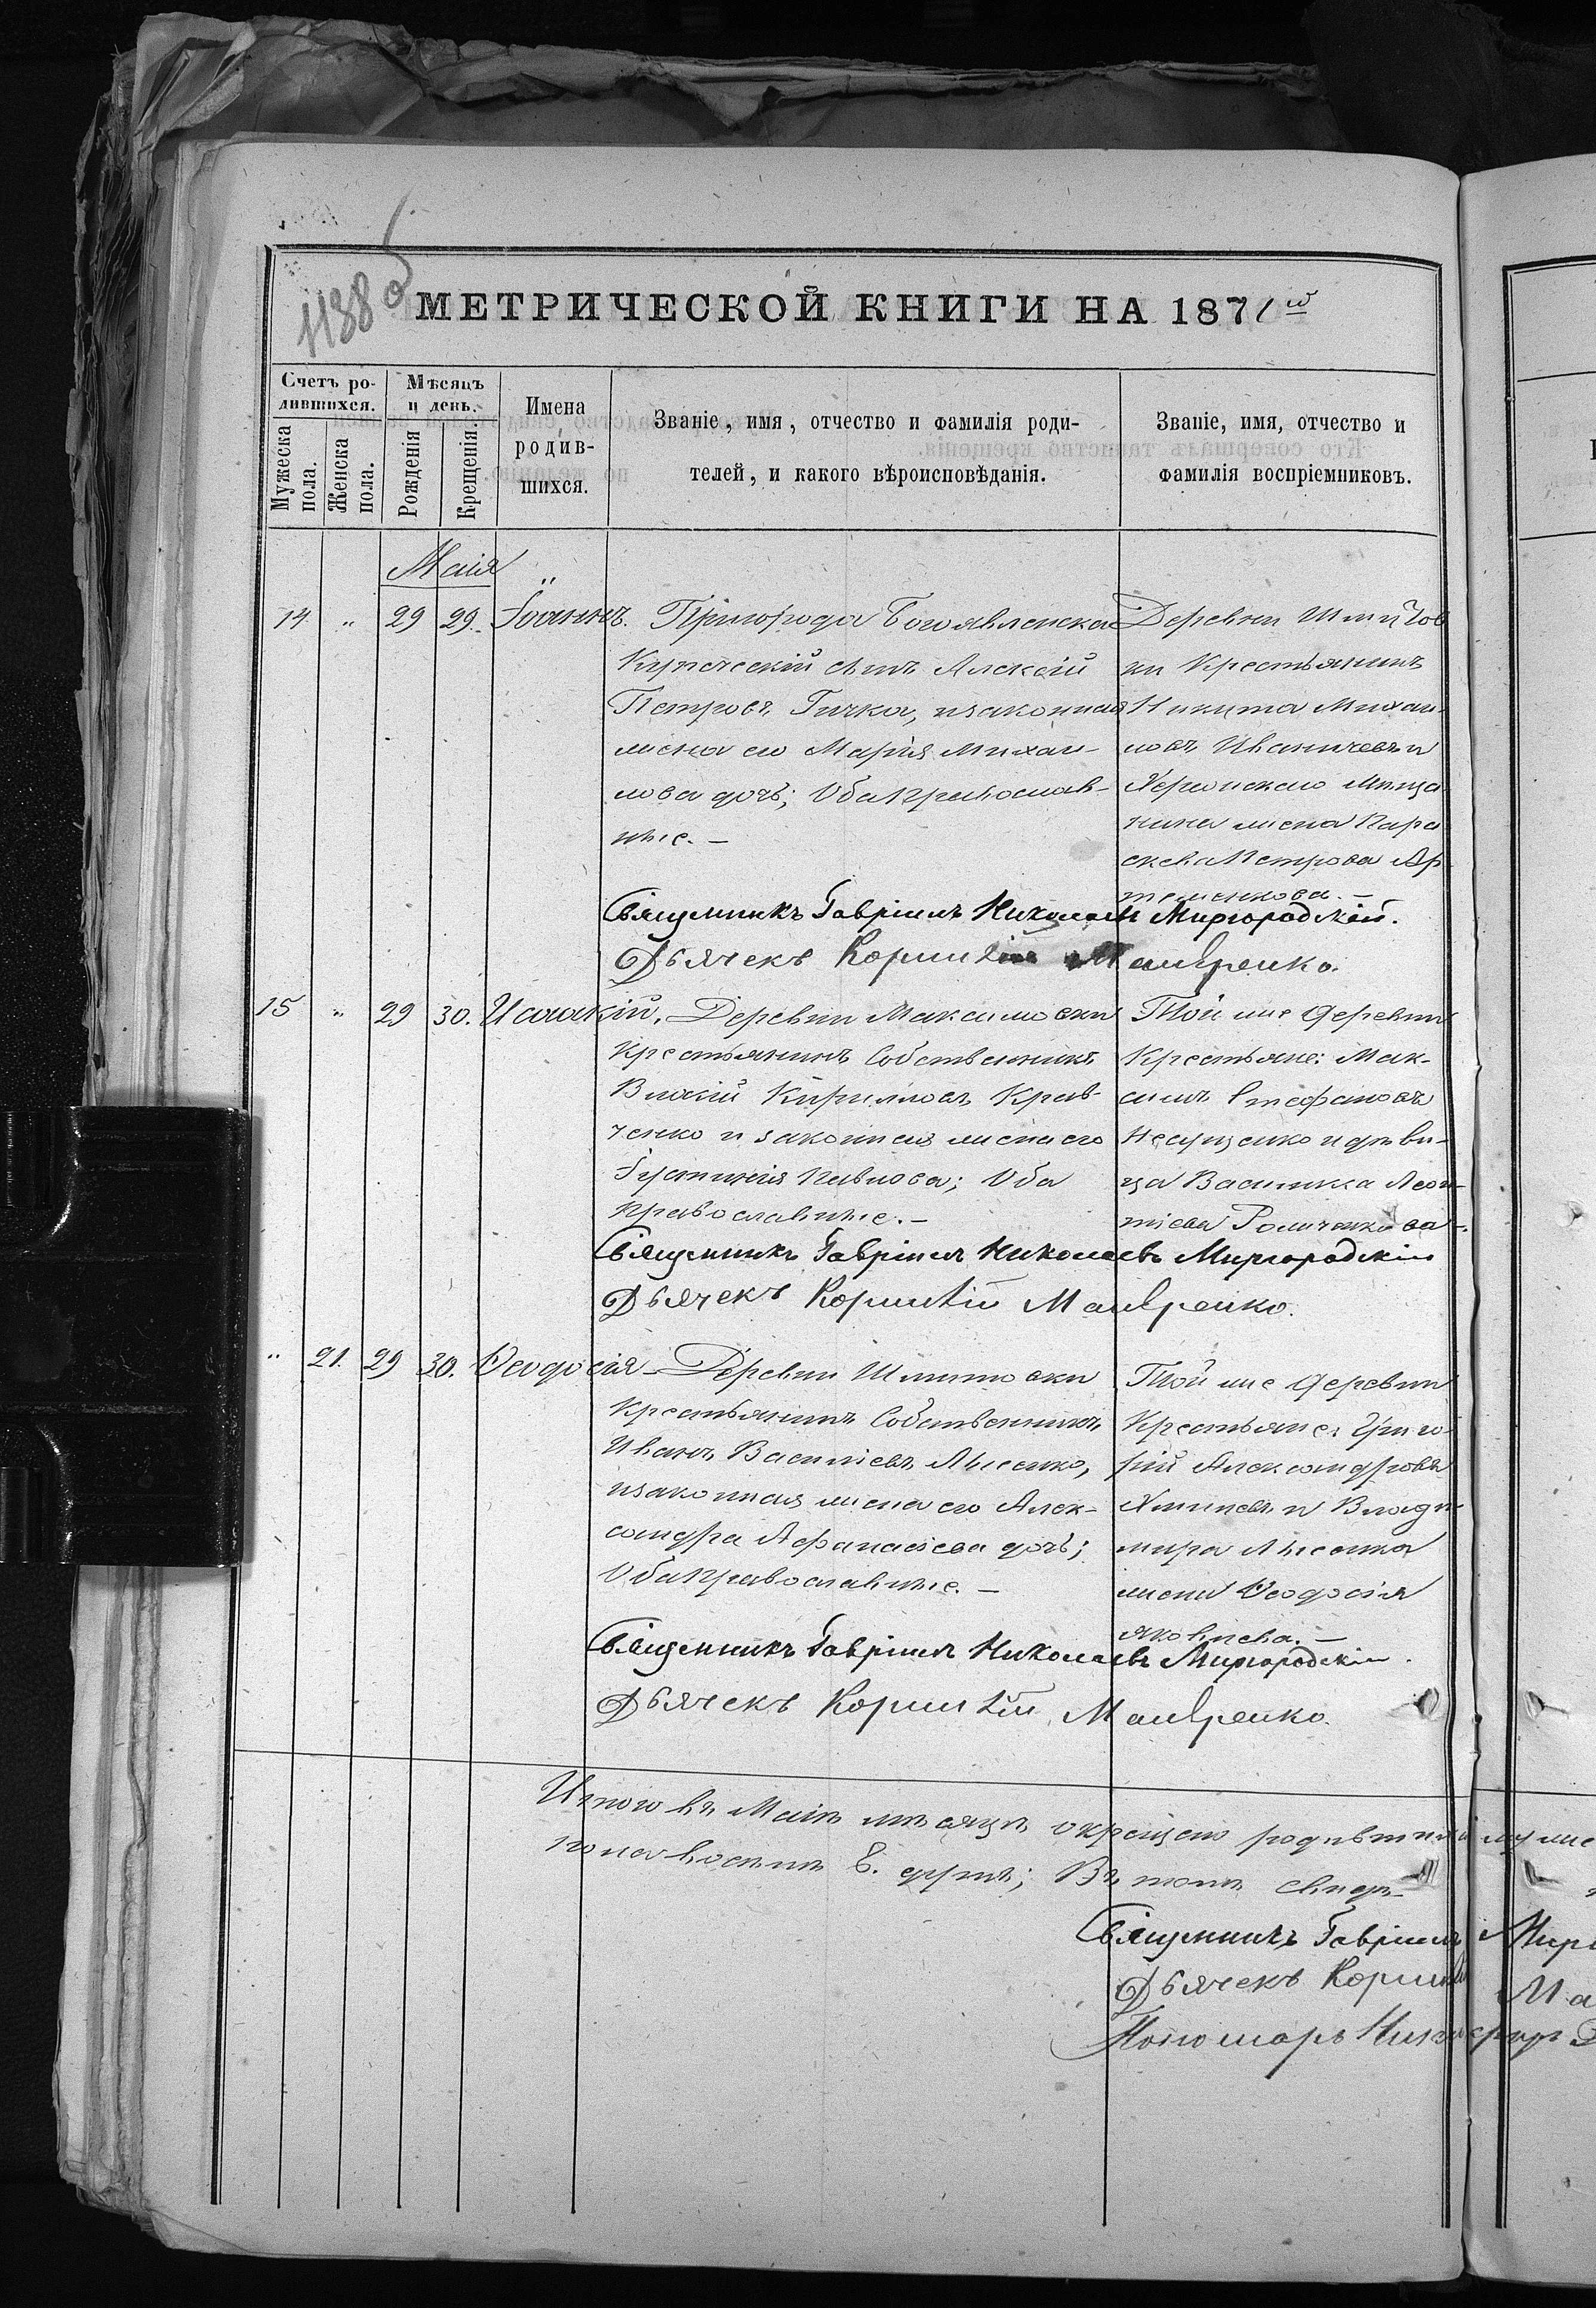 1138 об
МЕТРИЧЕСКОЙ КНИГИ НА 1871й
Счетъ ро-
дившихся.
Мужеска
пола.
Женска
пола.
Мѣсяцъ
и день.
Рожденія
Крещенія.
Имена
родив-
шихся.
Званіе, имя, отчество и фамилія роди-
телей, и какого вѣроисповѣданія.
Званіе, имя, отчество и
фамилія воспріемниковъ.
Маія
14 " 29 29. Іоаннъ.
Пригорода Богоявленска
Купеческій сынъ Алексій
Петровъ Гичка, и законная
жена его Марія Михаи-
лова дочь; Оба православ-
ные. –
Деревни
ки Крестьянинъ
Никита Михаи-
ловъ Иваничевъ и
Херсонскаго Мѣща
нина жена Пара
скева Петрова Ар
теменкова. –
Священникъ Гавріилъ Николаевъ Миргородскій.
Дьячекъ Корнилій Мавренко.
15 " 29 30. Исаакій.
Деревни Максимовки
Крестьянинъ Собственникъ
Кирилловъ Крав-
ченко и законная жена его
Іустинія Павлова; Оба
православные. –
Той же деревни
Крестьяне: Мак-
симъ Стефановъ
и дѣви-
ца Василиса Леон-
тіева Романченкова –.
Священникъ Гавріилъ Николаевъ Миргородскій
Дьячекъ Корнилій Мавренко.
" 21. 29 30. Ѳеодосія
Деревни
Крестьянинъ Собственникъ
Иванъ Василіевъ Лысенко,
и законная жена его Алек-
сандра Афанасіева дочь;
Оба православные. –
Той же деревни
Крестьяне: Григо-
рій Александровъ
и Влади-
мира Лысенка
жена Ѳеодосія
Яковлева. –
Священникъ Гавріилъ Николаевъ Миргородскій.
Дьячекъ Корнилій Мавренко.
Итого въ Маіѣ мѣсяцѣ окрещено родившихся муже
пола восемь 8. душъ; Въ томъ свидѣ-
Священникъ Гавріилъ Мирг
Дьячекъ Корнилій Ма
Пономарь